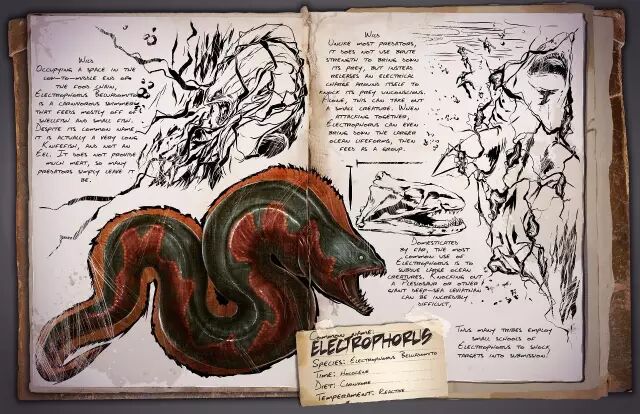 Wild
Occupying a space in the
low-to-middle end of
the food chain,
Electrophorus Beluadomito
is a carnivorous swimmer
that feeds mostly off of
shellfish and small fish.
Despite its common name,
it is actually a very long
Knifefish, and not an
Eel. It does not provide
much meat, so many
predators simply leave it
be.
Wild
Unlike most predators,
it does not use brute
strength to bring down
its prey, but instead
releases an electrical
charge around itself to
knock its prey unconscious.
Alone, this can take out
a small creature. When
attacking together,
Electrophorus can even
bring down the larger
ocean lifeforms, then
feed as a group.
Domesticated
By far, the most
common use of
Electrophorus is to
subdue large ocean
creatures. Knocking out
a Plesiosaur or other
giant deep-sea leviathan
can be incredibly
difficult,
thus many tribes employ
small schools of
Electrophorus to shock
targets into submission!
Common name:
Electrophorus
Species: Electrophorus Beluadomito
Time: Holocene
Diet: Carnivore
Temperament: Reactive